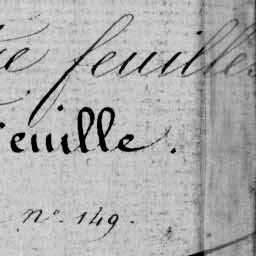 feuilles
feuille.
n° 149.